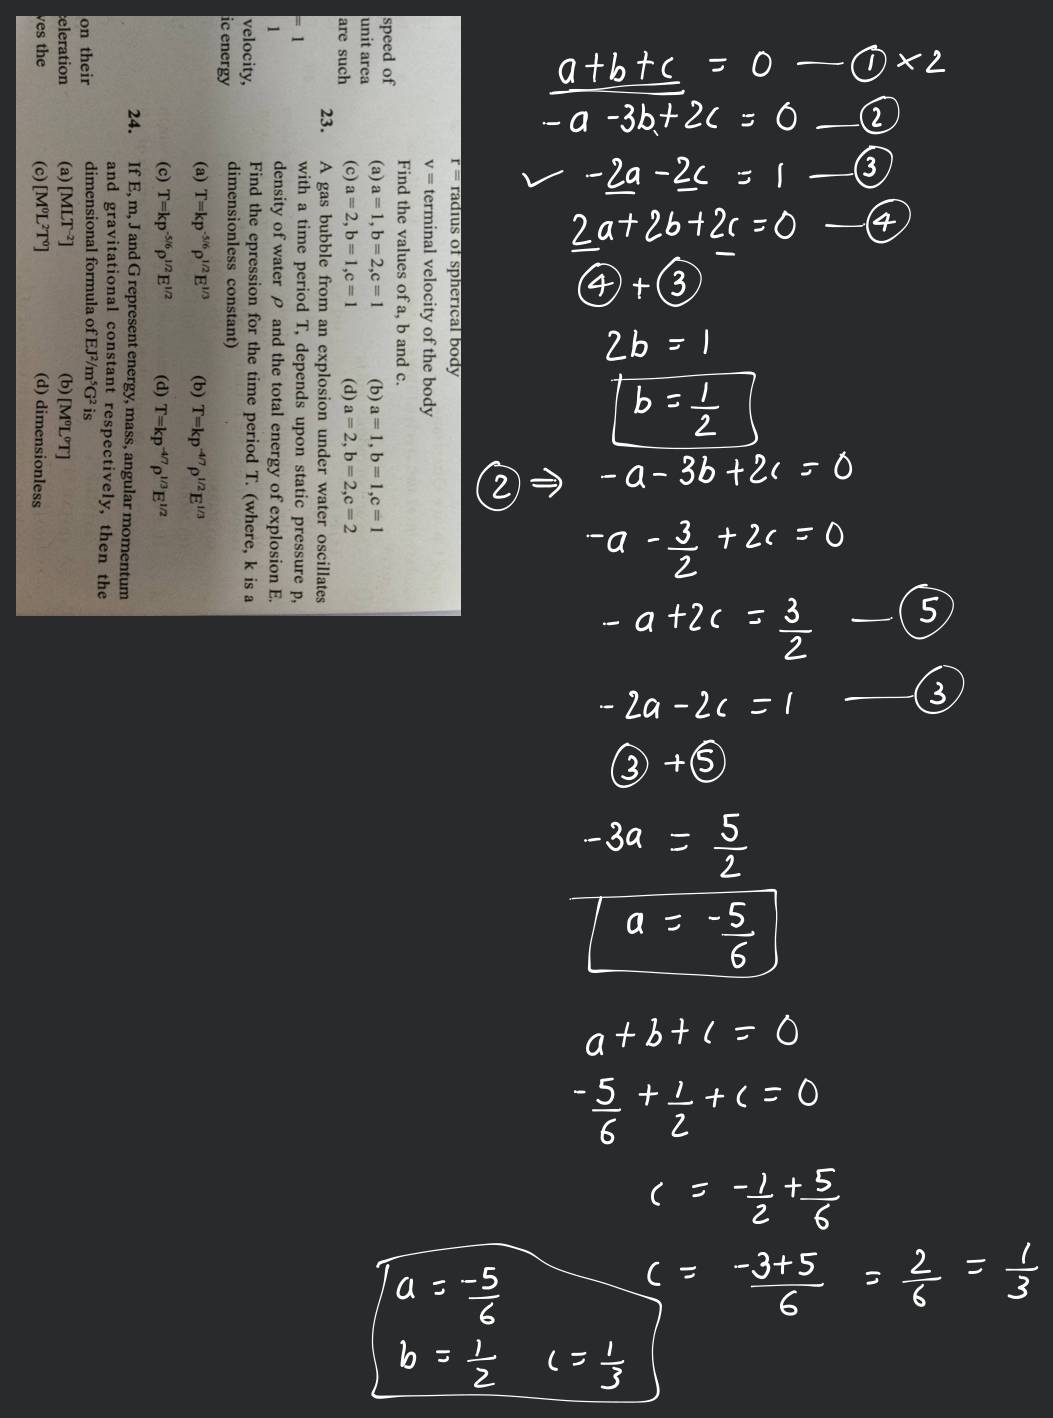 speed of
unit area
are such
= 1
1
velocity,
ic energy
on their
celeration
ves the
r = radius of spherical body
v = terminal velocity of the body
Find the values of a, b and c.
(a) a = 1, b = 2,c = 1 (b) a = 1, b = 1,c = 1
(c) a = 2, b = 1,c = 1 (d) a = 2, b = 2,c = 2
23. A gas bubble from an explosion under water oscillates
with a time period T, depends upon static pressure p,
density of water ρ and the total energy of explosion E.
Find the epression for the time period T. (where, k is a
dimensionless constant)
(a) T=kp⁻⁵/⁶ ρ¹/² E¹/³ (b) T=kp⁻⁴/⁷ ρ¹/² E¹/³
(c) T=kp⁻⁵/⁶ ρ¹/² E¹/² (d) T=kp⁻⁴/⁷ ρ¹/³ E¹/²
24. If E, m, J and G represent energy, mass, angular momentum
and gravitational constant respectively, then the
dimensional formula of EJ²/m⁵G² is
(a) [MLT⁻²] (b) [M⁰L⁰T]
(c) [M⁰L²T⁰] (d) dimensionless
a+b+c = 0 — ① × 2
-a -3b+2c = 0 — ②
✓ -2a -2c = 1 — ③
2a+2b+2c=0 — ④
④ + ③
2b = 1
b = 1/2
② ⇒ -a - 3b +2c = 0
-a - 3/2 + 2c = 0
- a +2c = 3/2 — ⑤
- 2a - 2c = 1 — ③
③ + ⑤
-3a = 5/2
a = -5/6
a + b + c = 0
-5/6 + 1/2 + c = 0
c = -1/2 + 5/6
c = -3+5/6 = 2/6 = 1/3
a = -5/6
b = 1/2 c = 1/3